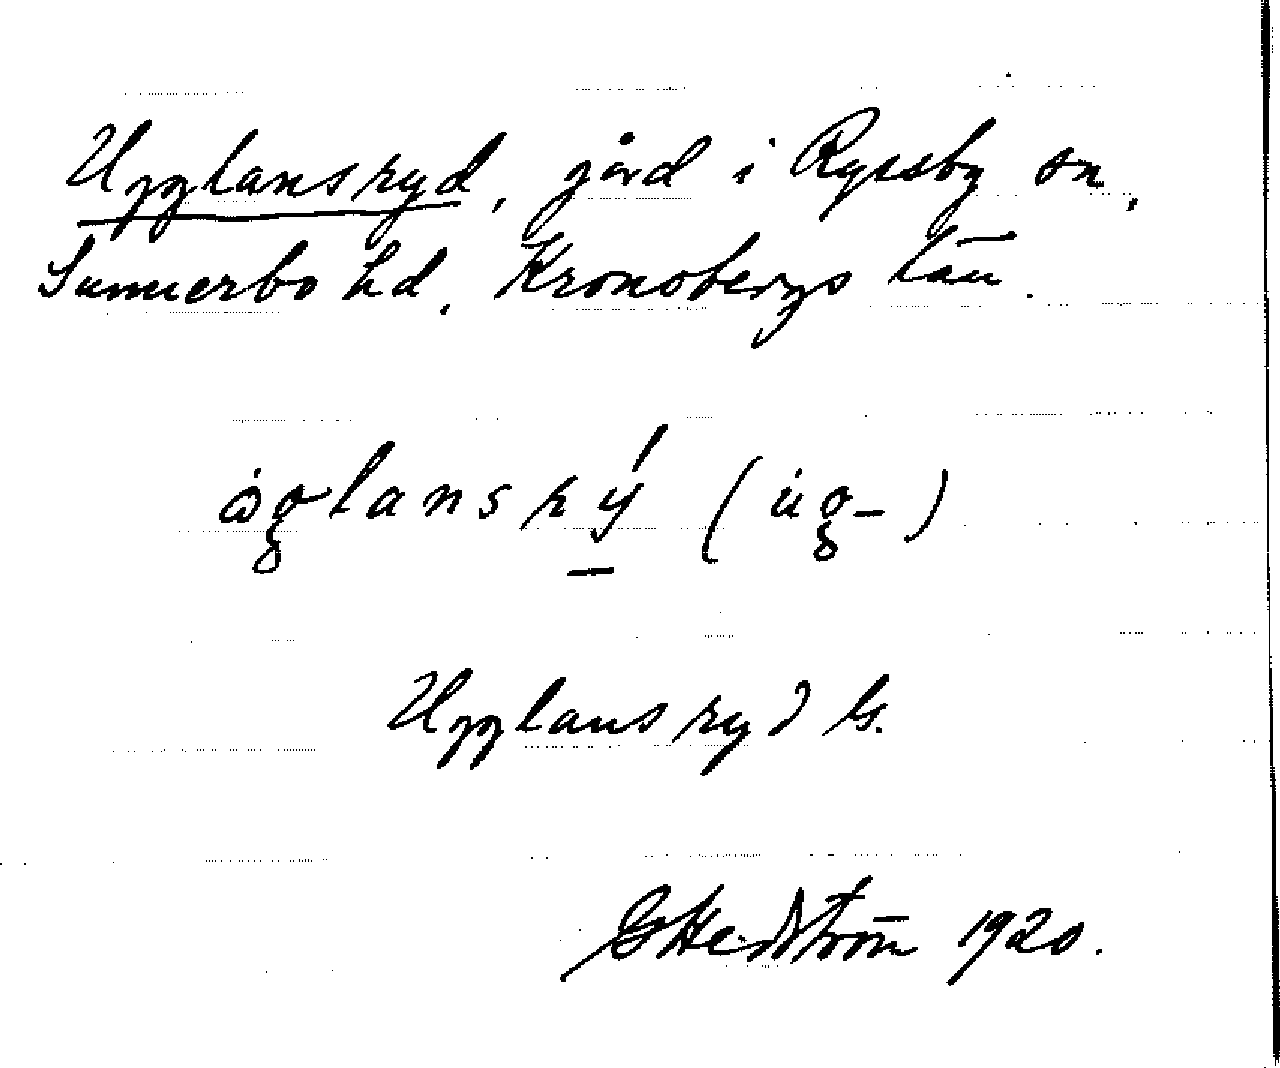 Upplansryd, gård i Ryssby sn,
Sunnerbo hd, Kronobergs län.
Upplansryd G.
GHedström 1920.